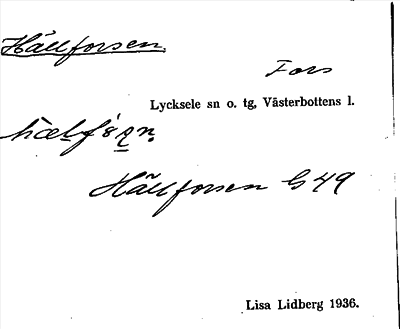 Hällforsen
Fors
Lycksele sn o. tg, Västerbottens l.
Hällforsen G 49
Lisa Lidberg 1936.